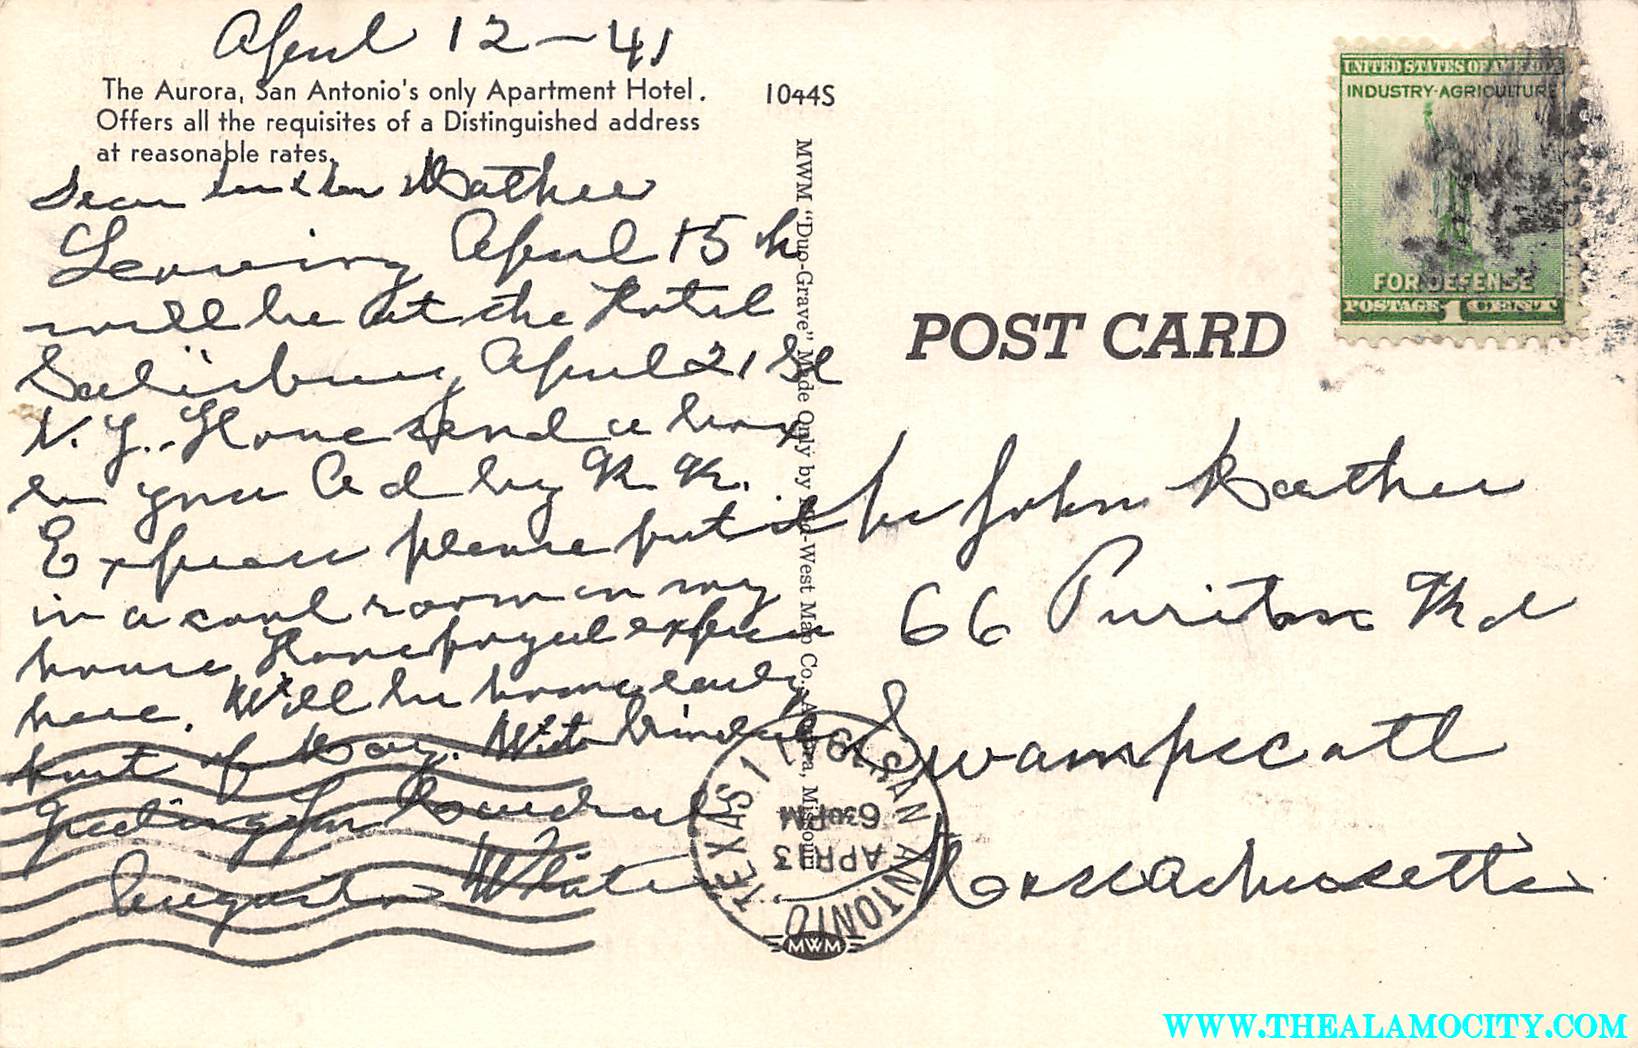 April 12-41
The Aurora, San Antonio's only Apartment Hotel.
Offers all the requisites of a Distinguished address
at reasonable rates.
1044S
Dear
Leaving April 15th
will be at the Hotel
Salisbury, April 21st
N. Y.. Have send a box
to your Ad by R R.
Express please put it
in a cool room in my
house Have payed express
here. Will be home early
part of May. With kindest
greetings
Augusta White
MWM "Duo-Grave" Made Only by Mid-West Map Co., Aurora, Missouri
MWM
POST CARD
UNITED STATES OF AMERICA
INDUSTRY-AGRICULTURE
FOR DEFENSE
POSTAGE 1 CENT
John
66 Puritan Rd
Swampscott
Massachusetts
SAN ANTONIO TEXAS
APR 13
6 30 PM
WWW.THEALAMOCITY.COM